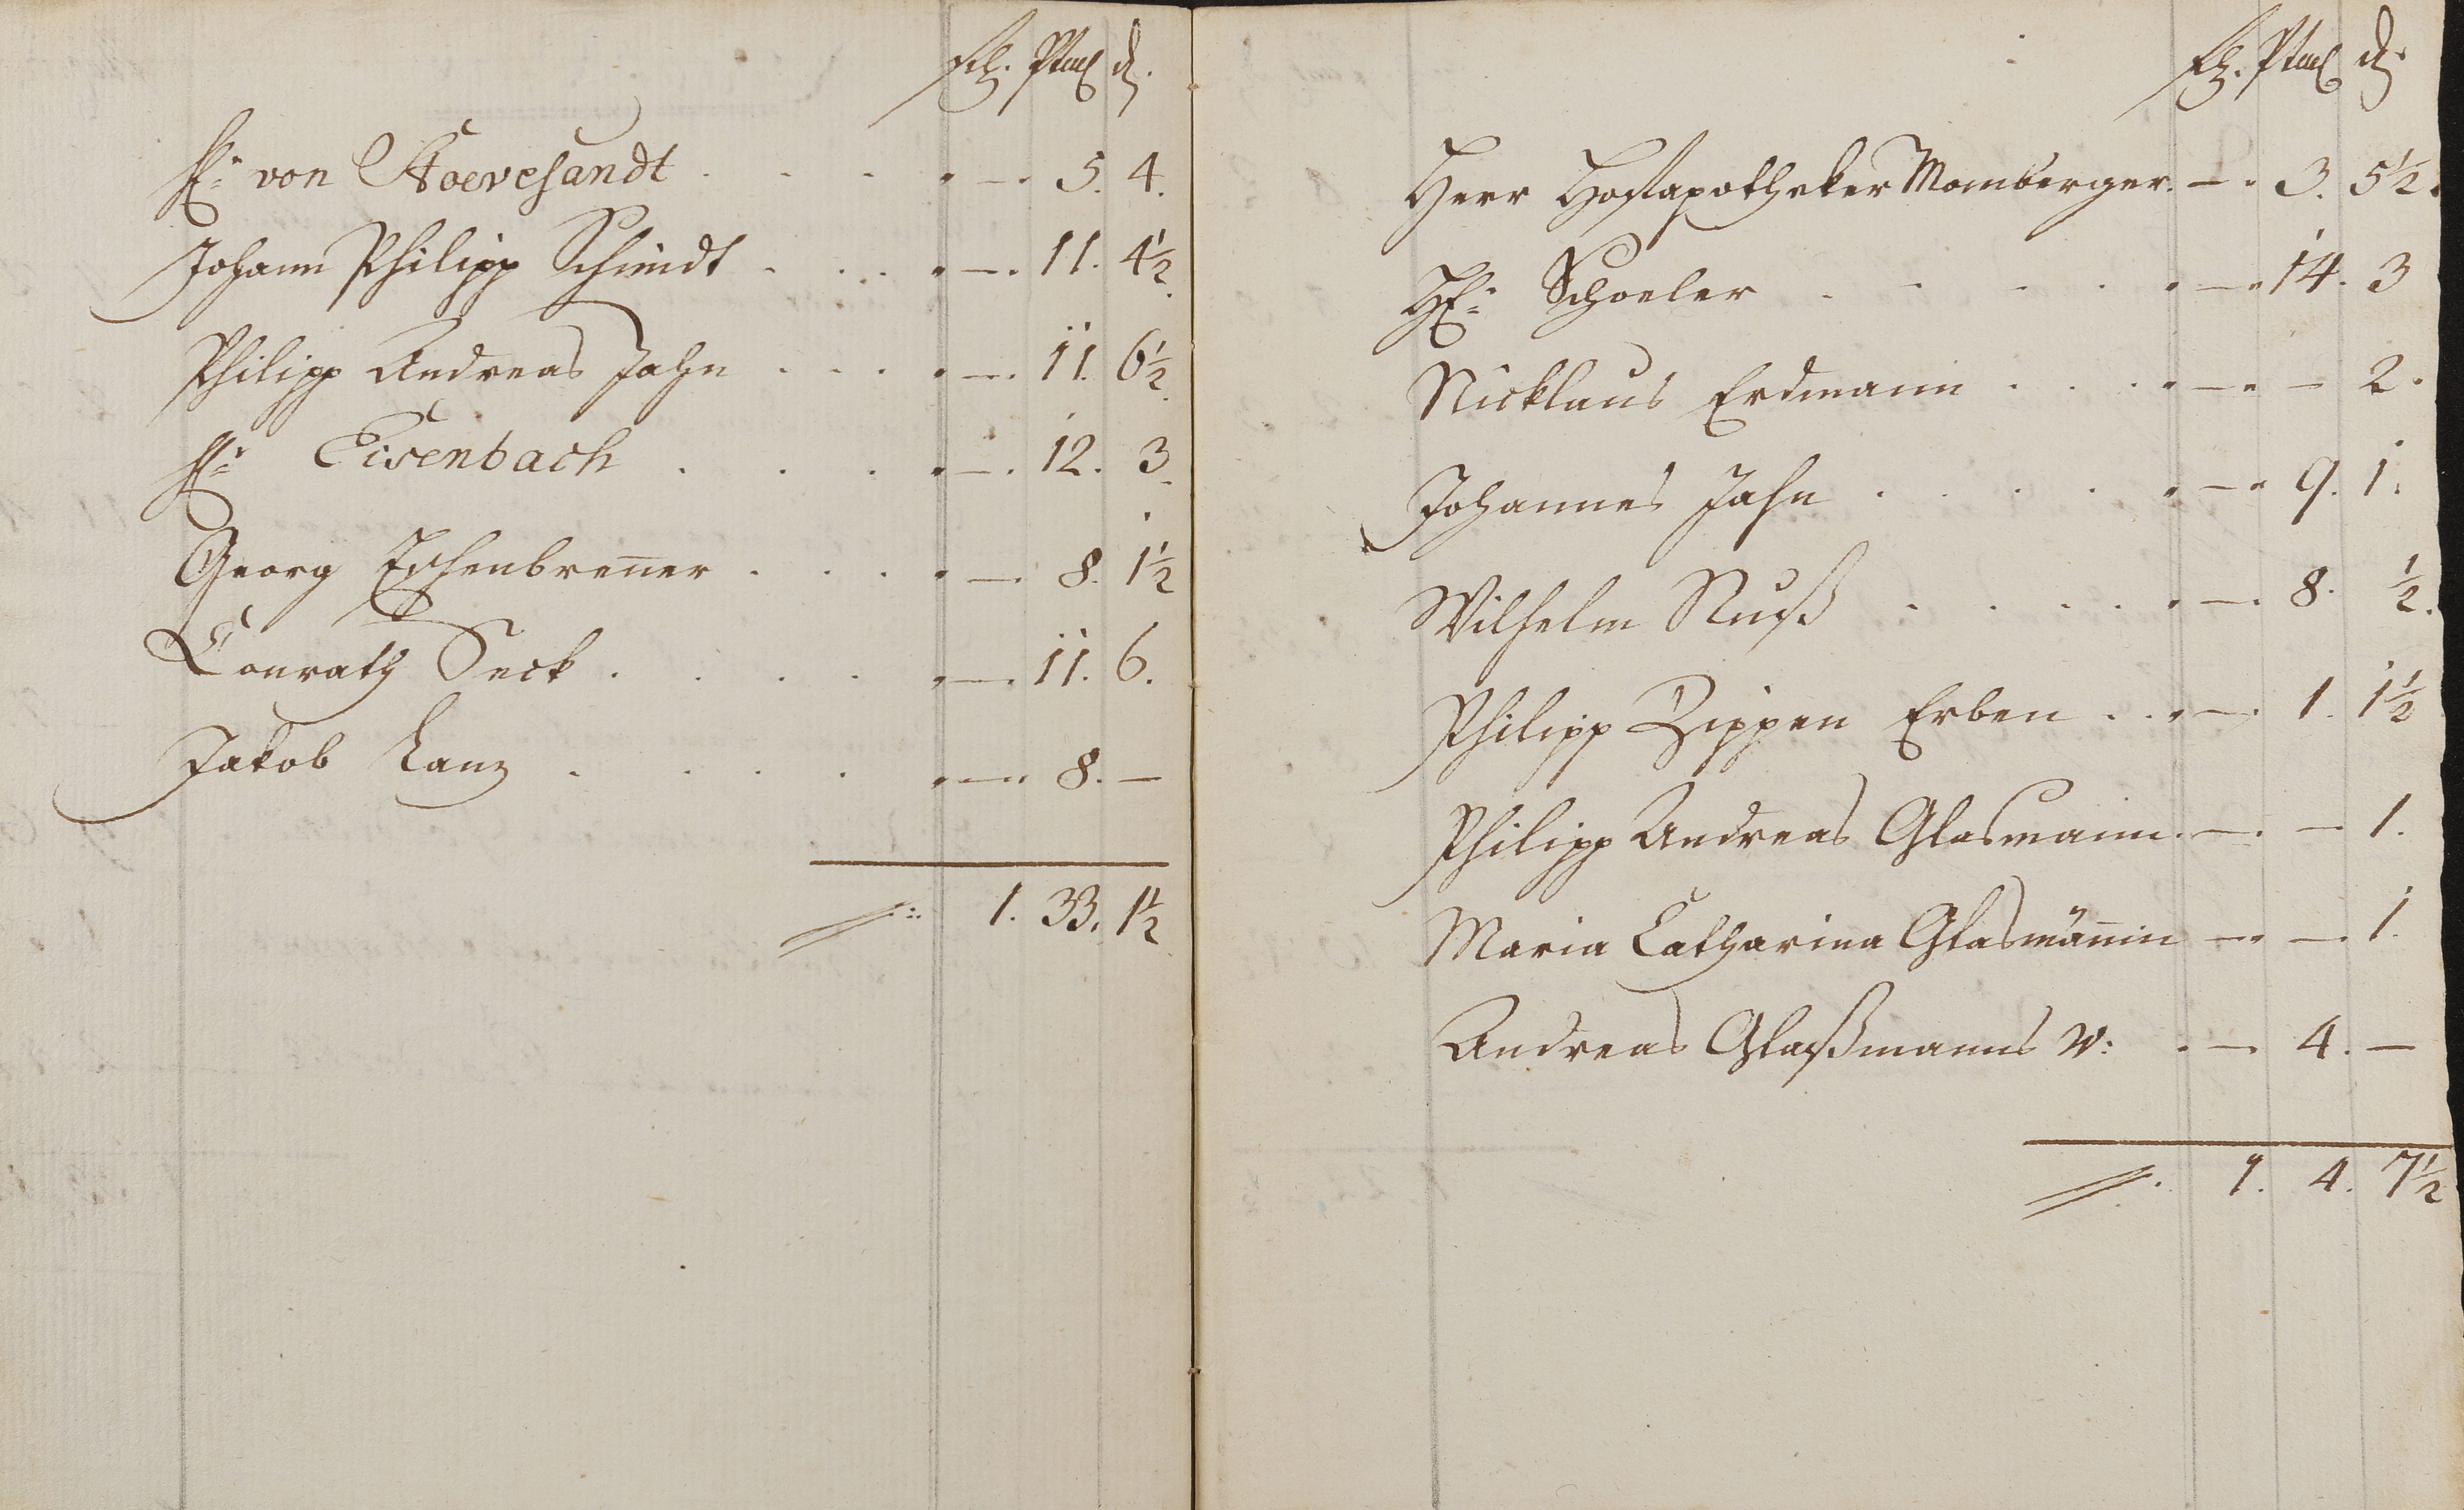 Rth. Ptaс d.
H: von Stoevesandt . . . . — . 5. 4.
Johann Philipp Schmidt . . . . — . 11. 4½.
Philipp Andreas Jahn . . . . — . 11. 6½.
H: Eisenbach . . . . — . 12. 3.
Georg Eschenbrenner . . . . — . 8. 1½
Conrath Seck . . . . . — . 11. 6.
Jakob Lanz . . . . . — . 8. —
1. 33. 1½
Herr Hofapotheker Momberger. — . 3. 5½.
H: Schoeler . . . . . — . 14. 3
Nicklaus Erdmann . . . . — . — 2.
Johannes Jahn . . . . . — . 9. 1.
Wilhelm Nuß . . . . . — . 8. ½.
Philipp Zippen Erben . . . — . 1. 1½
Philipp Andreas Glasmann. — . — 1.
Maria Catharina Glasmännin — . — 1.
Andreas Glaßmanns W: . — . 4. —
1. 4. 7½